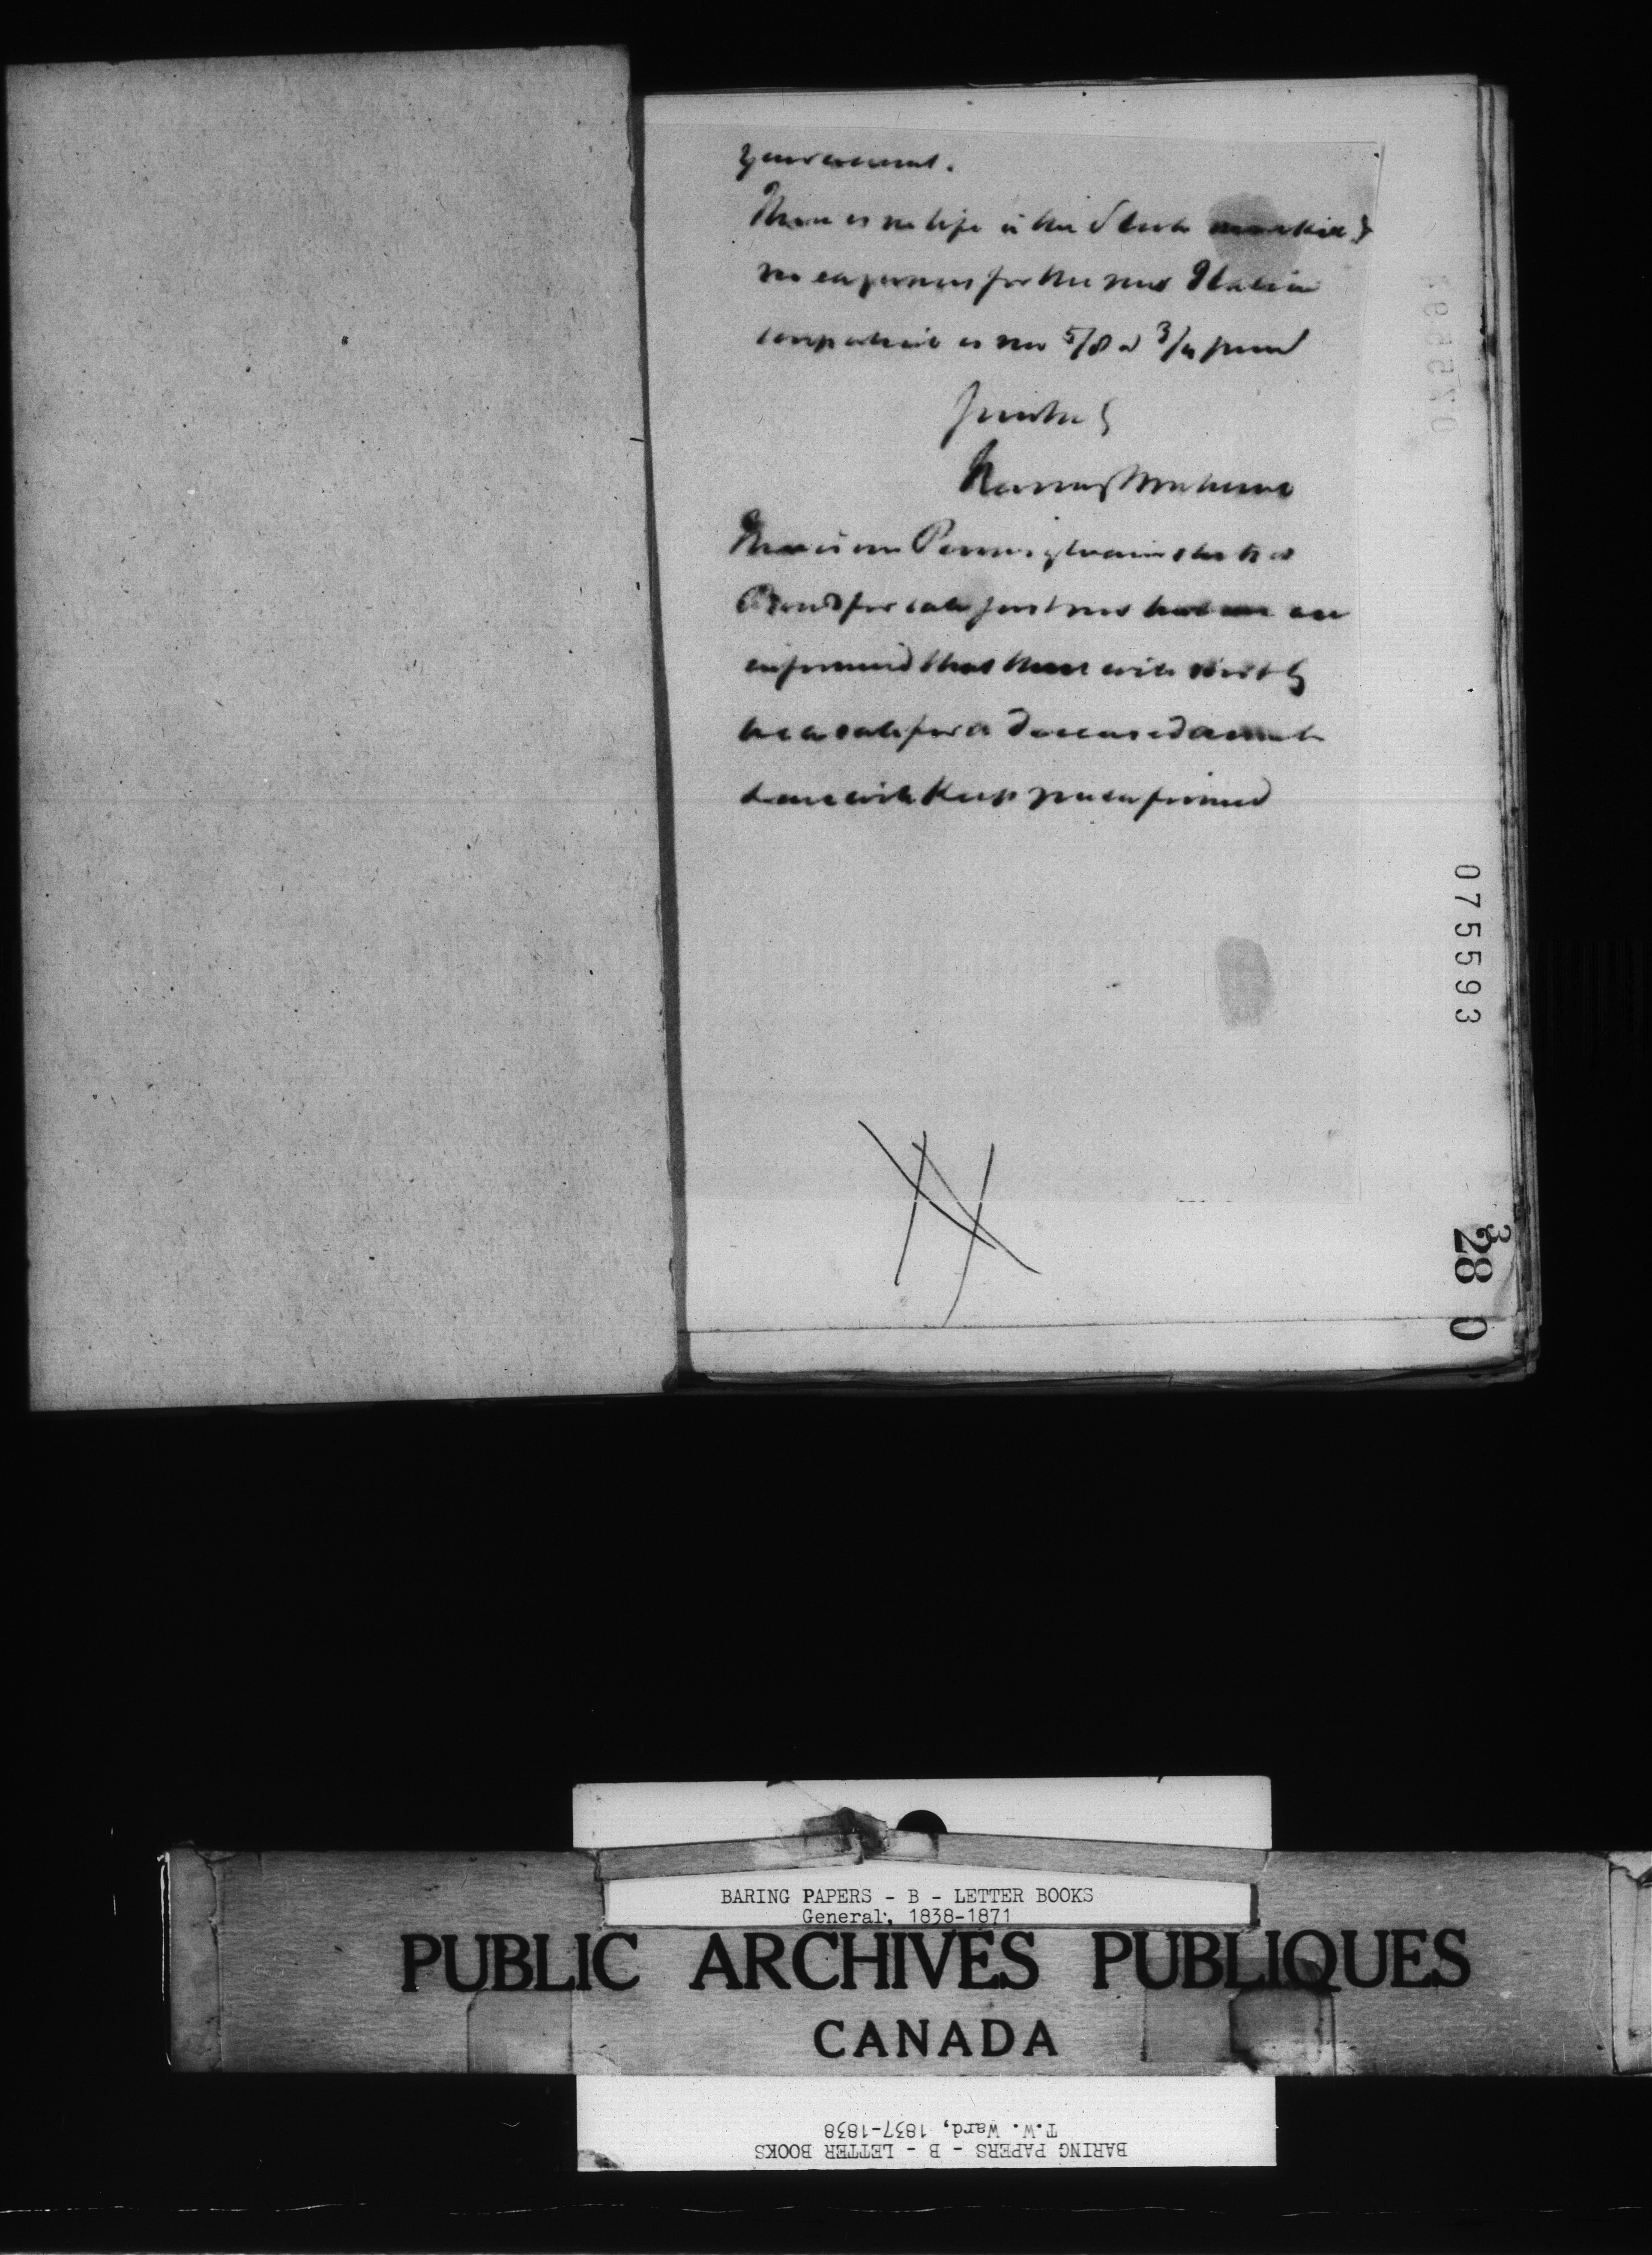 your account.
There is no life in the Stock market &
no eagerness for the new Italian
is now 5/8 a 3/4 prem
There is no Pennsylvania stock or
Bonds for sale just now but we are
informed that there will shortly
be a sale for a deceased account
& we will keep you informed
075593
3
28 0
BARING PAPERS - B - LETTER BOOKS
General, 1838-1871
PUBLIC ARCHIVES PUBLIQUES
CANADA
BARING PAPERS - B - LETTER BOOKS
T.W. Ward, 1837-1838